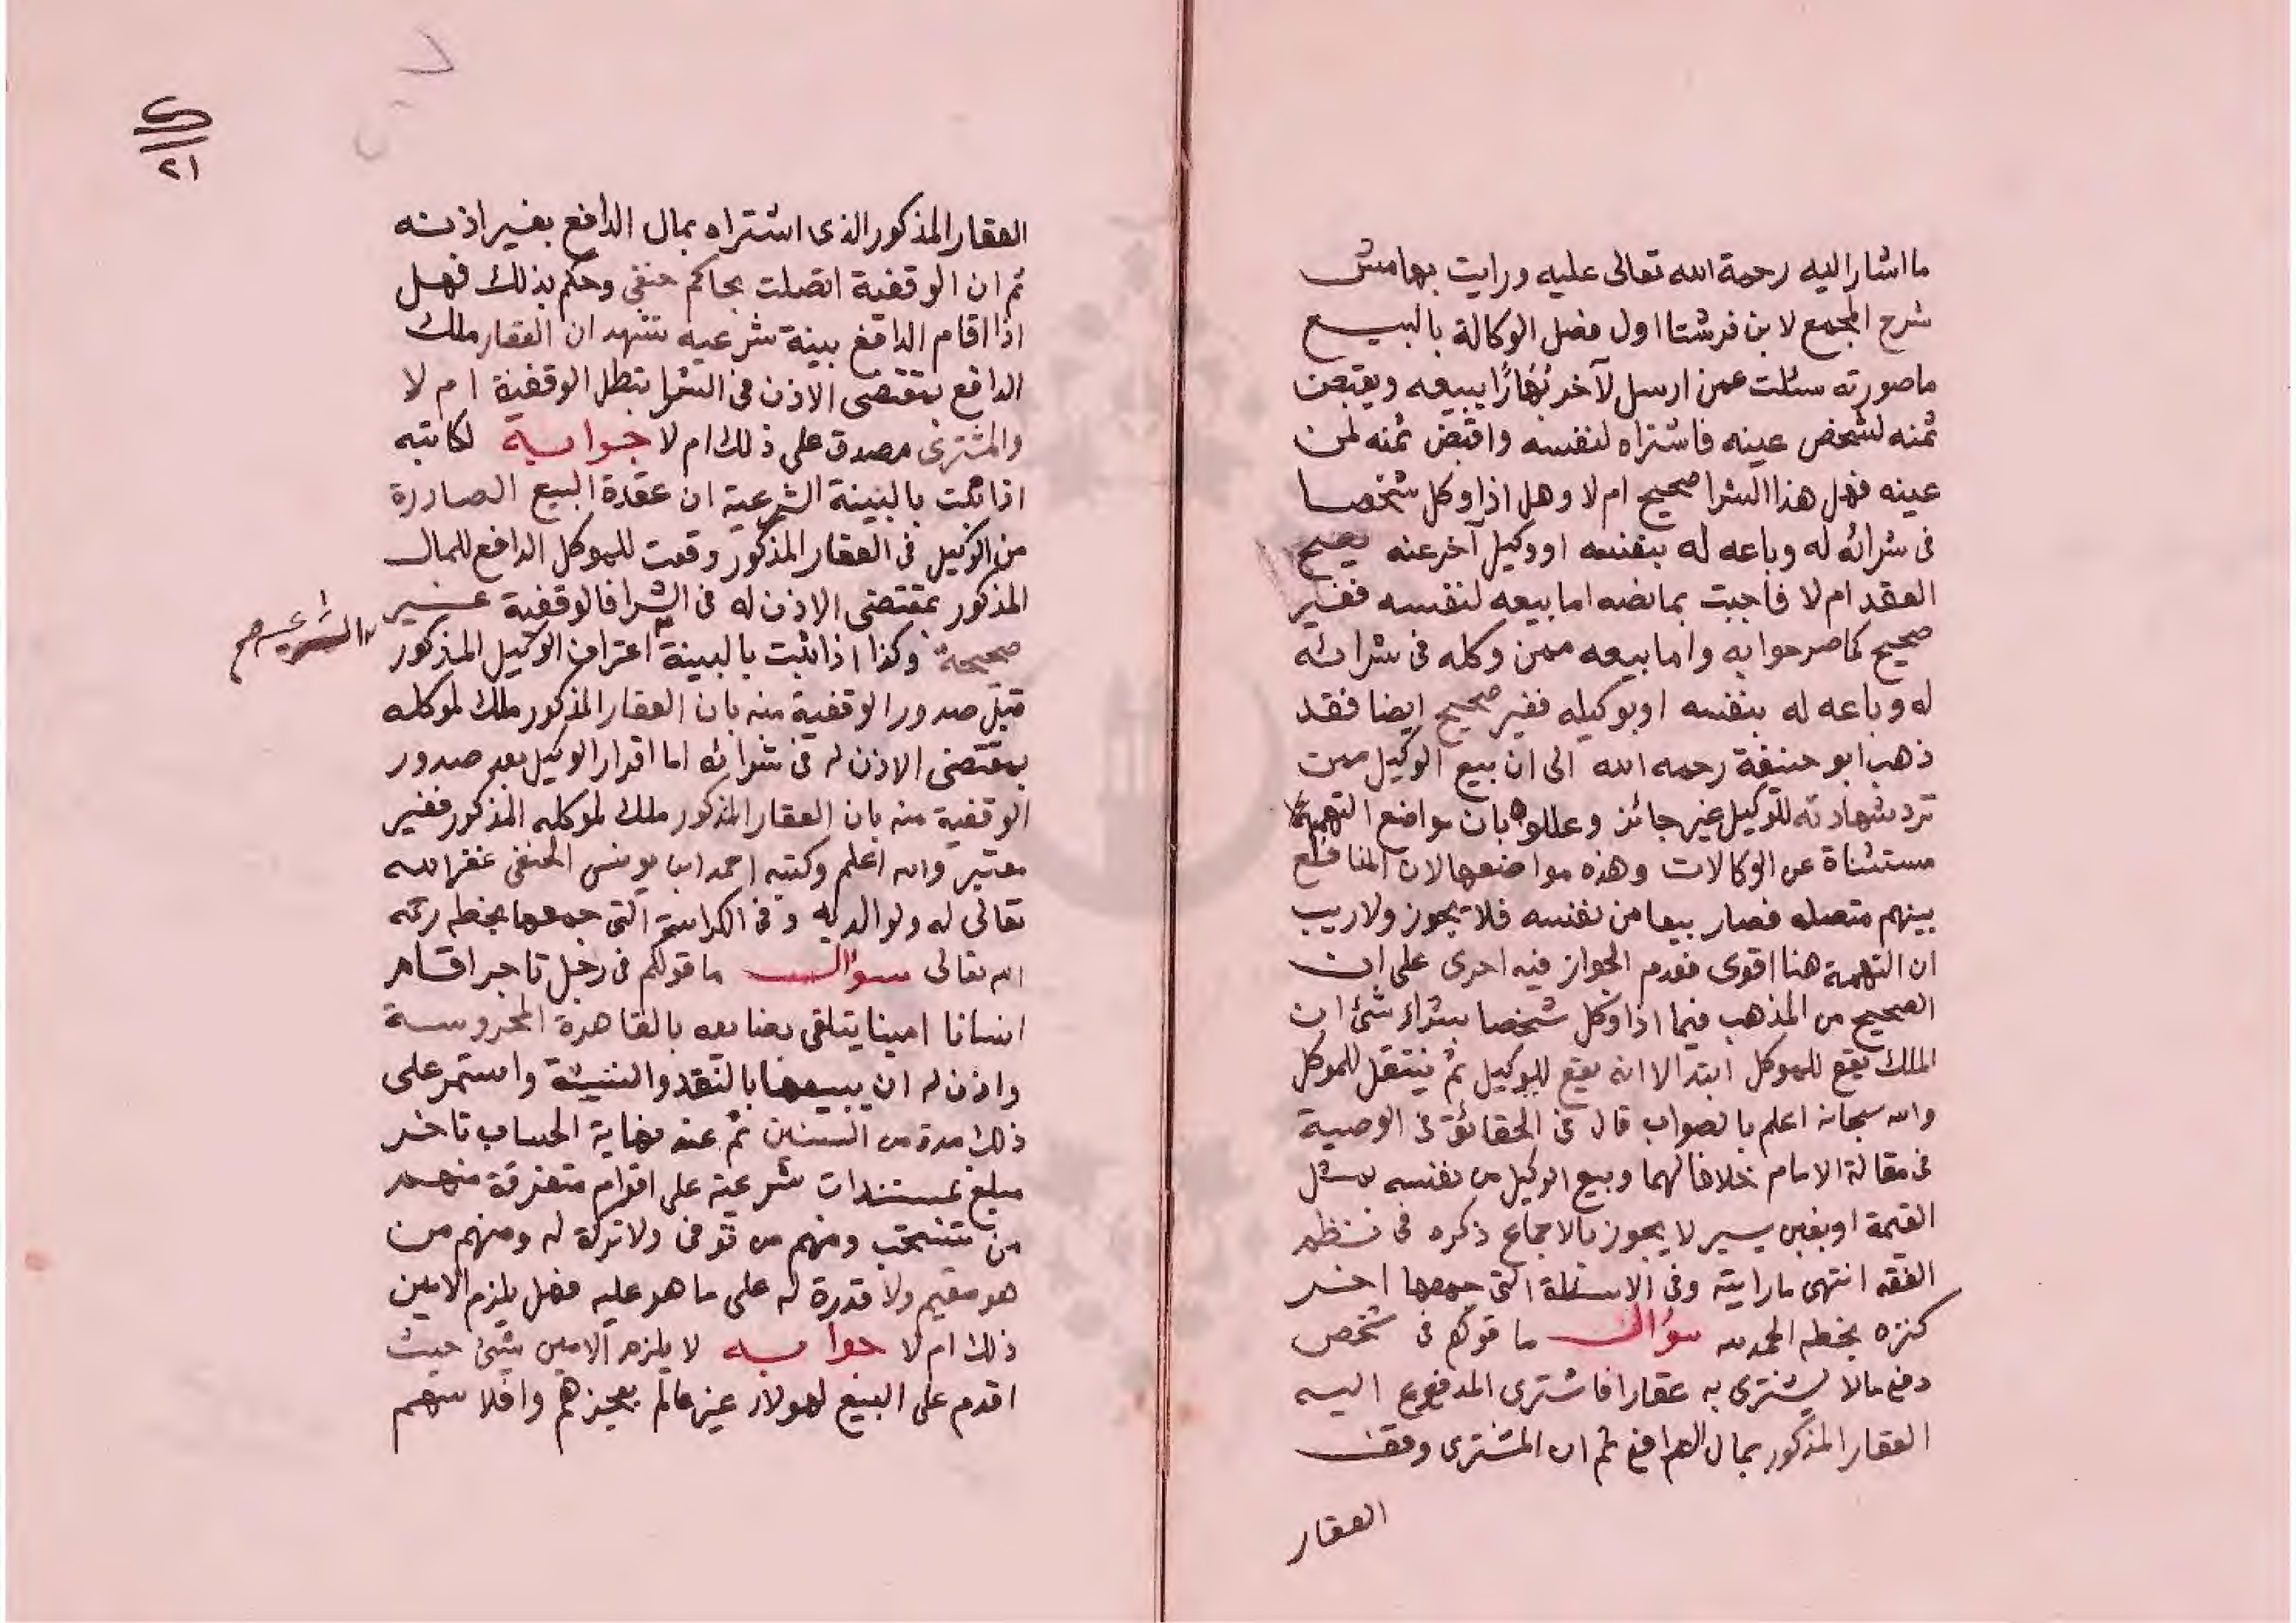 ما اشار اليه رحمة الله تعالى عليه ورايت بهامش
شرح المجمع لابن فرشتا اول فصل الوكالة بالبيع
ما صورته سئلت عمن ارسل لآخر بُهارًا يبيعه ويقبض
ثمنه لشخص عينه فاشتراه لنفسه واقبض ثمنه لمن
عينه فهل هذا الشرا صحيح ام لا وهل اذا وكل شخصا
فى شرائه له وباعه له بنفسه او وكيل آخر عنه يصح
العقد ام لا فاجبت بما نصه اما بيعه لنفسه فغير
صحيح كما صرحوا به واما بيعه ممن وكله فى شرائه
له وباعه له بنفسه او بوكيله فغير صحيح ايضا فقد
ذهب ابو حنيفة رحمه الله الى ان بيع الوكيل ممن
ترد شهادته للوكيل غير جائز وعللوه بان مواضع التهمة
مستثناة عن الوكالات وهذه مواضعها لان المنافع
بينهم متصله فصار بيعا من نفسه فلا يجوز ولا ريب
ان التهمة هنا اقوى فعدم الجواز فيه احرى على ان
الصحيح من المذهب فيما اذا وكل شخصا بشراء شئ ان
الملك يقع للموكل ابتدا لا انه يقع للوكيل ثم ينتقل للموكل
والله سبحانه اعلم بالصواب قال فى الحقائق فى الوصية
فى مقالة الامام خلافا لهما وبيع الوكيل من نفسه بمثل
القيمة او بغبن يسير لا يجوز بالاجماع ذكره فى نظم
الفقه انتهى ما رايته وفى الاسئلة التى جمعها اخر
كنزه بخطه الحمد لله سؤال ما قولكم فى شخص
دفع مالا ليشترى به عقارا فاشترى المدفوع اليه
العقار المذكور بمال الدافع ثم ان المشترى وقف
العقار
٢١
العقار المذكور الذى اشتراه بمال الدافع بغير اذنه
ثم ان الوقفية اتصلت بحاكم حنفى وحكم بذلك فهل
اذا اقام الدافع بينة شرعيه تشهد ان العقار ملك
الدافع بمقتضى الاذن فى الشرا تبطل الوقفية ام لا
والمشترى مصدق على ذلك ام لا جوابه لكاتبه
اذا ثبت بالبينة الشرعية ان عقدة البيع الصادرة
من الوكيل فى العقار المذكور وقعت للموكل الدافع للمال
المذكور بمقتضى الاذن له فى الشرا فالوقفية غير
صحيحة وكذا اذا ثبت بالبينة اعتراف الوكيل المذكور
الشرعيه صح
قبل صدور الوقفية منه بان العقار المذكور ملك لموكله
بمقتضى الاذن له فى شرائه اما اقرار الوكيل بعد صدور
الوقفية منه بان العقار المذكور ملك لموكله المذكور فغير
معتبر والله اعلم وكتبه احمد ابن يونس الحنفى غفر الله
تعالى له ولوالديه وفى الكراسة التى جمعها بخطه رحمه
الله تعالى سؤال ما قولكم فى رجل تاجر اقام
انسانا امينا يتلقى بضايعه بالقاهرة المحروسة
واذن له ان يبيعها بالنقد والنسيئة واستمر على
ذلك مدة من السنين ثم عند نهاية الحساب تاخر
مبلغ بمستندات شرعية على اقوام متفرقة منهم
من تسحب ومنهم من توفى ولا تركة له ومنهم من
هو مقيم ولا قدرة له على ما هو عليه فهل يلزم الامين
ذلك ام لا جوابه لا يلزم الامين شئ حيث
اقدم على البيع لهولاء غير عالم بعجزهم وافلاسهم